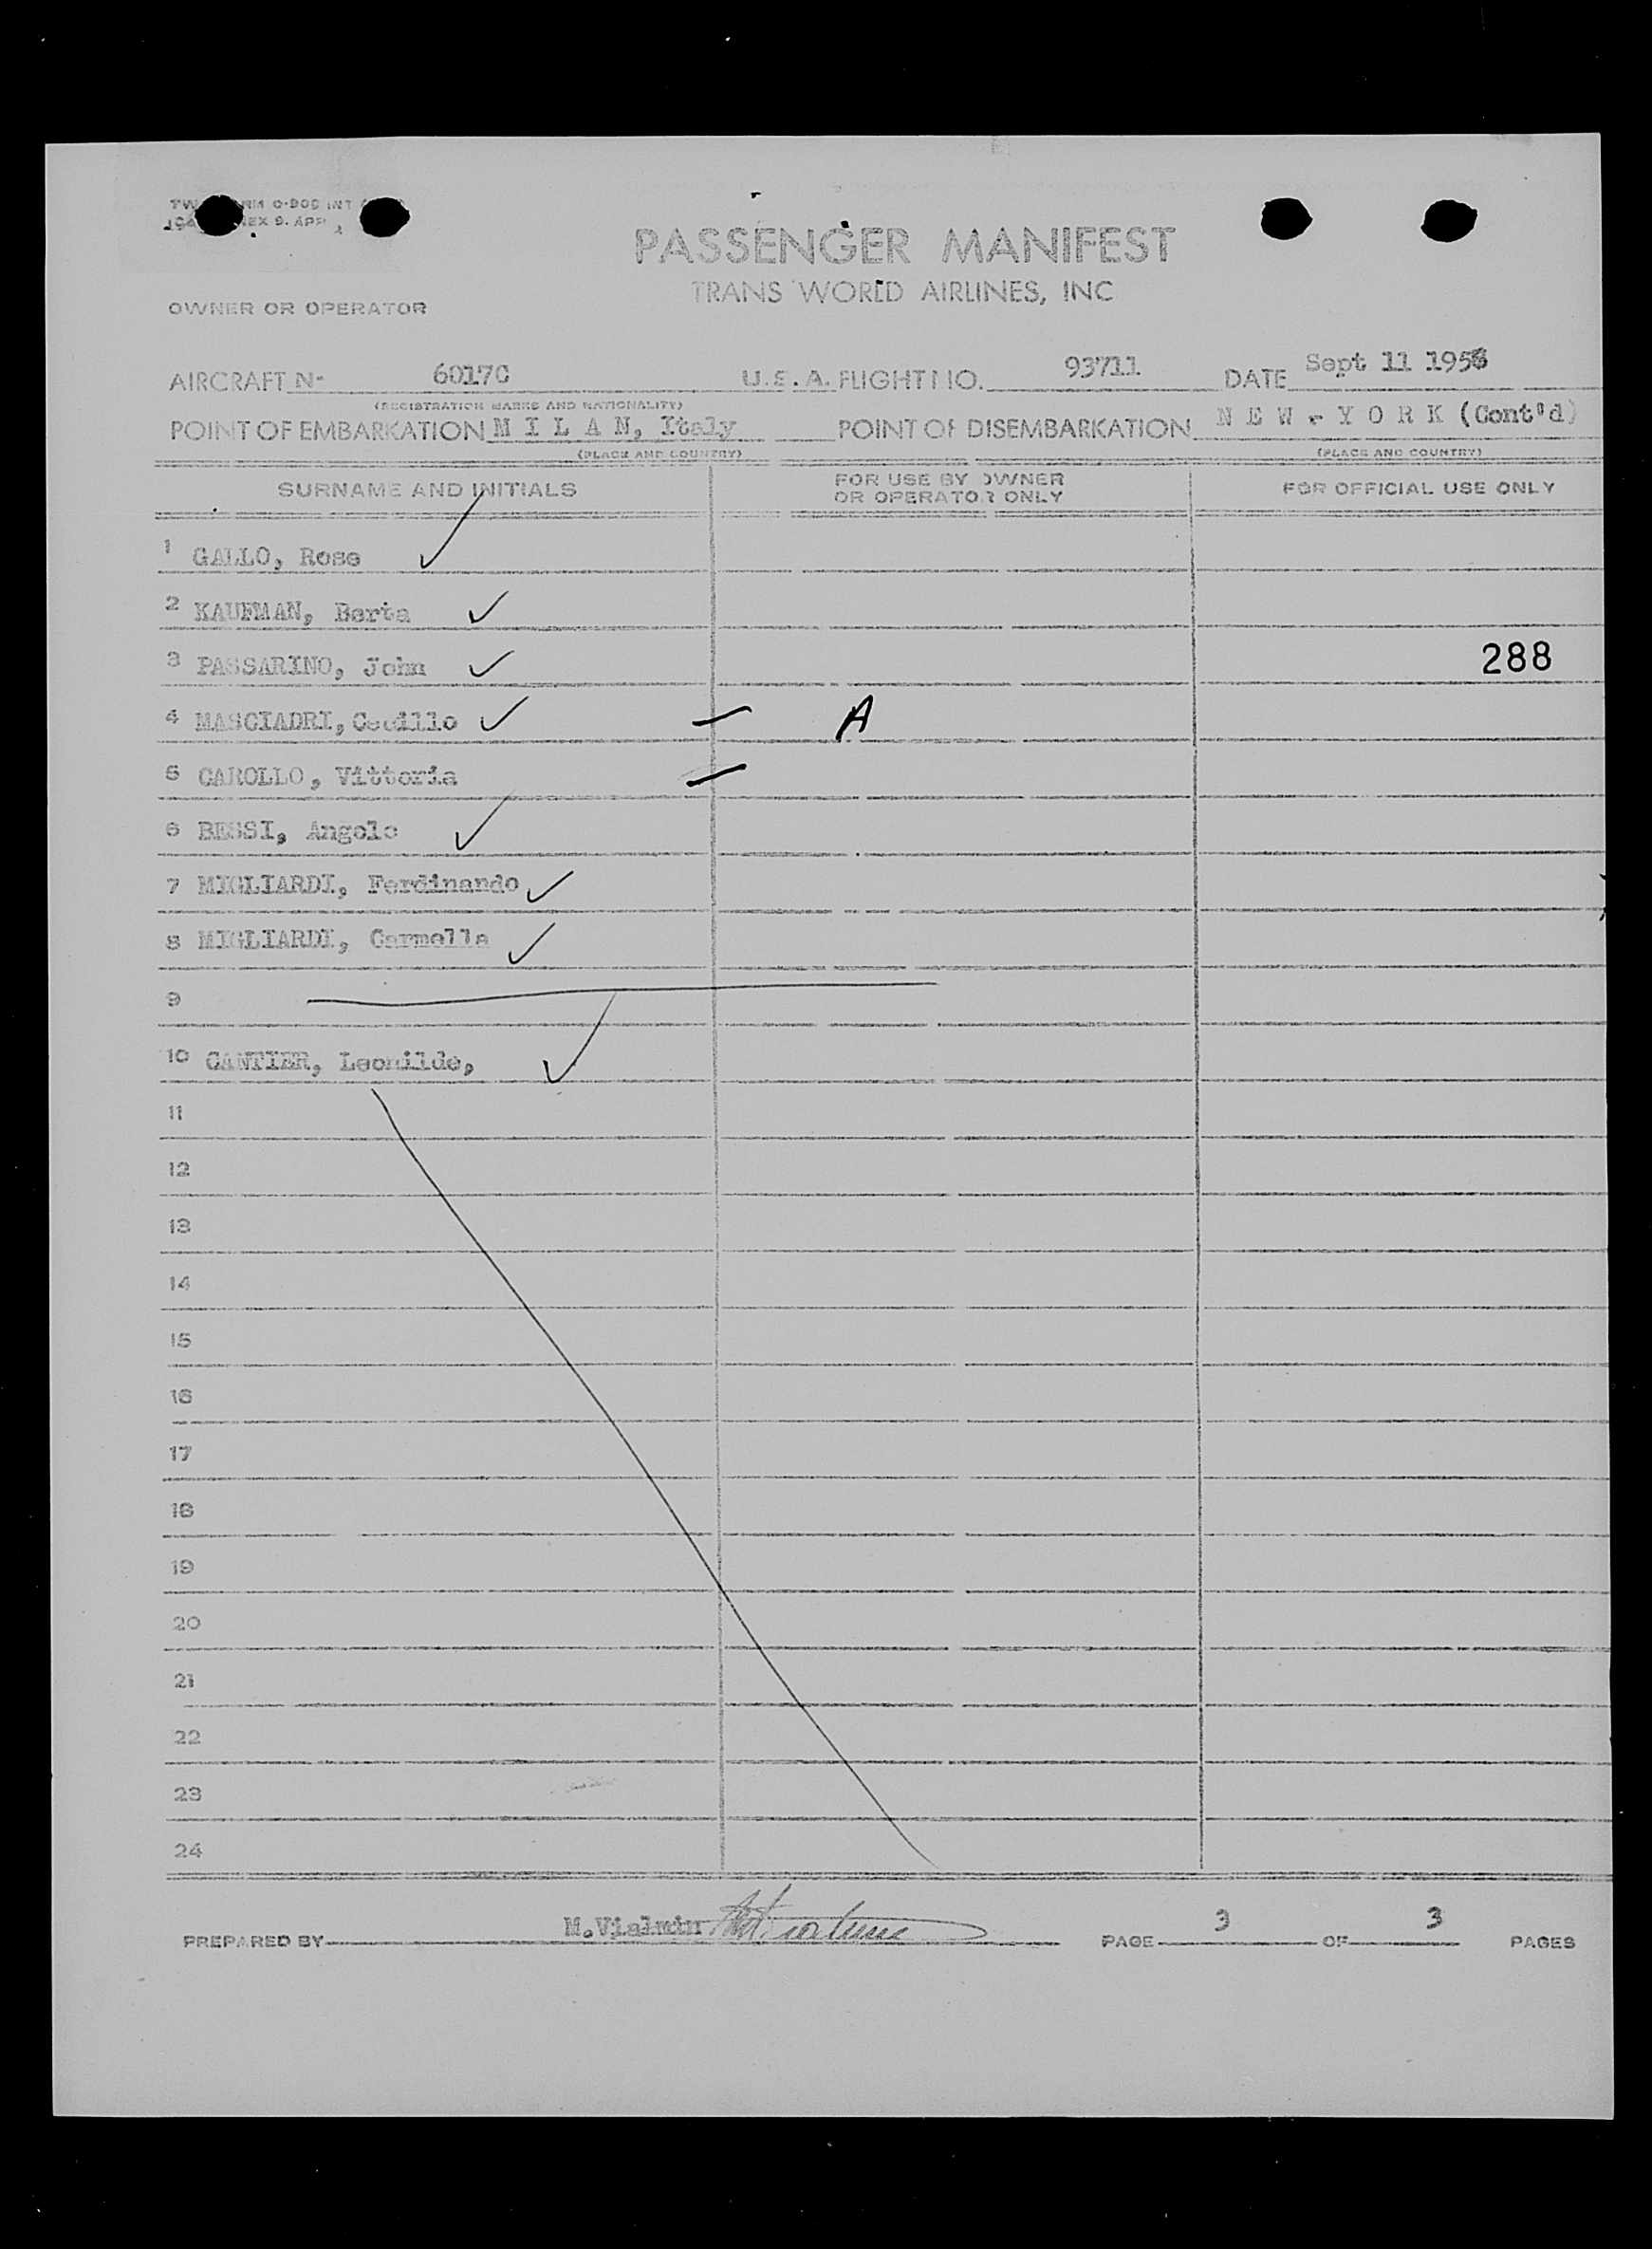 PASSENGER MANIFEST
TRANS WORLD AIRLINES, INC
OWNER OR OPERATOR
AIRCRAFT No 6017C U.S.A. FLIGHT NO. 93711 DATE Sept 11 195
(REGISTRATION MARKS AND NATIONALITY)
POINT OF EMBARKATION M I L A N, Italy POINT OF DISEMBARKATION N E W - Y O R K (Cont'd)
(PLACE AND COUNTRY) (PLACE AND COUNTRY)
SURNAME AND INITIALS FOR USE BY OWNER OR OPERATOR ONLY FOR OFFICIAL USE ONLY
1 GALLO, Rose
2 KAUFMAN, Berta
3 PASSARINO, John 288
4 MASCIADRI, A
5 CAROLLO, Vittoria
6 BESSI, Angelo
7 MIGLIARDI, Ferdinando
8 MIGLIARDI, Carmella
9
10 CANTIER, Leonilde,
11
12
13
14
15
16
17
18
19
20
21
22
23
24
PREPARED BY PAGE 3 OF 3 PAGES